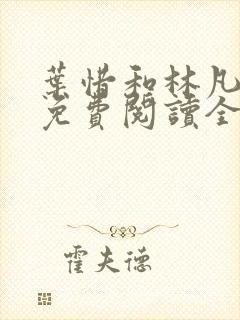 葉惜和林凡
免費閱讀全
霍夫德